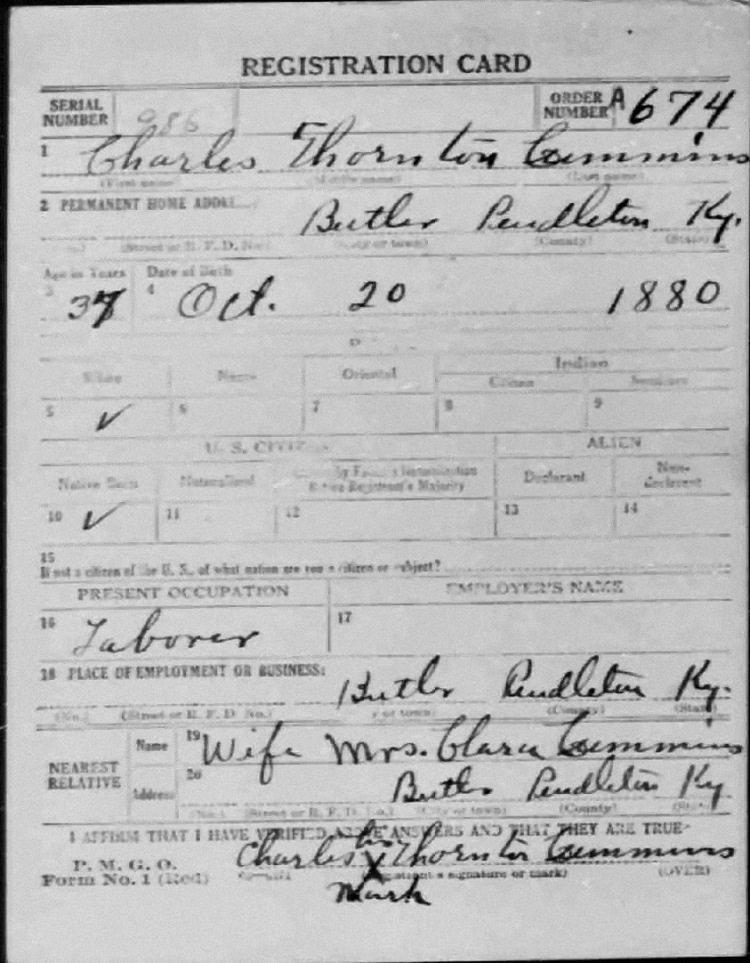 REGISTRATION CARD
SERIAL NUMBER 986 ORDER NUMBER A 674
1 Charles Thornton Cummins
(First name) (Middle name) (Last name)
2 PERMANENT HOME
Butler Pendleton Ky.
(Street or R. F. D. No.) (City or town) (County) (State)
Age in Years Date of Birth
3 37 4 Oct. 20 1880
White Negro Oriental Indian
Citizen
5 ✓ 6 7 8 9
U. S. ALIEN
Native Born Naturalized Registrant's Majority Declarant Non-declarant
10 ✓ 11 12 13 14
15
If not a citizen of the U. S., of what nation are you a citizen or subject?
PRESENT OCCUPATION EMPLOYER'S NAME
16 Laborer 17
18 PLACE OF EMPLOYMENT OR BUSINESS:
Butler Pendleton Ky.
(No.) (Street or R. F. D. No.) (County) (State)
NEAREST RELATIVE Name 19 Wife Mrs. Clara Cummins
Address 20 Butler Pendleton Ky
(No.) (Street or R. F. D. No.) (City or town) (County)
I AFFIRM THAT I HAVE VERIFIED ABOVE ANSWERS AND THAT THEY ARE TRUE
P. M. G. O.
Form No. 1 (Red)
Charles his X Thornton Cummins
mark
signature or mark) (OVER)